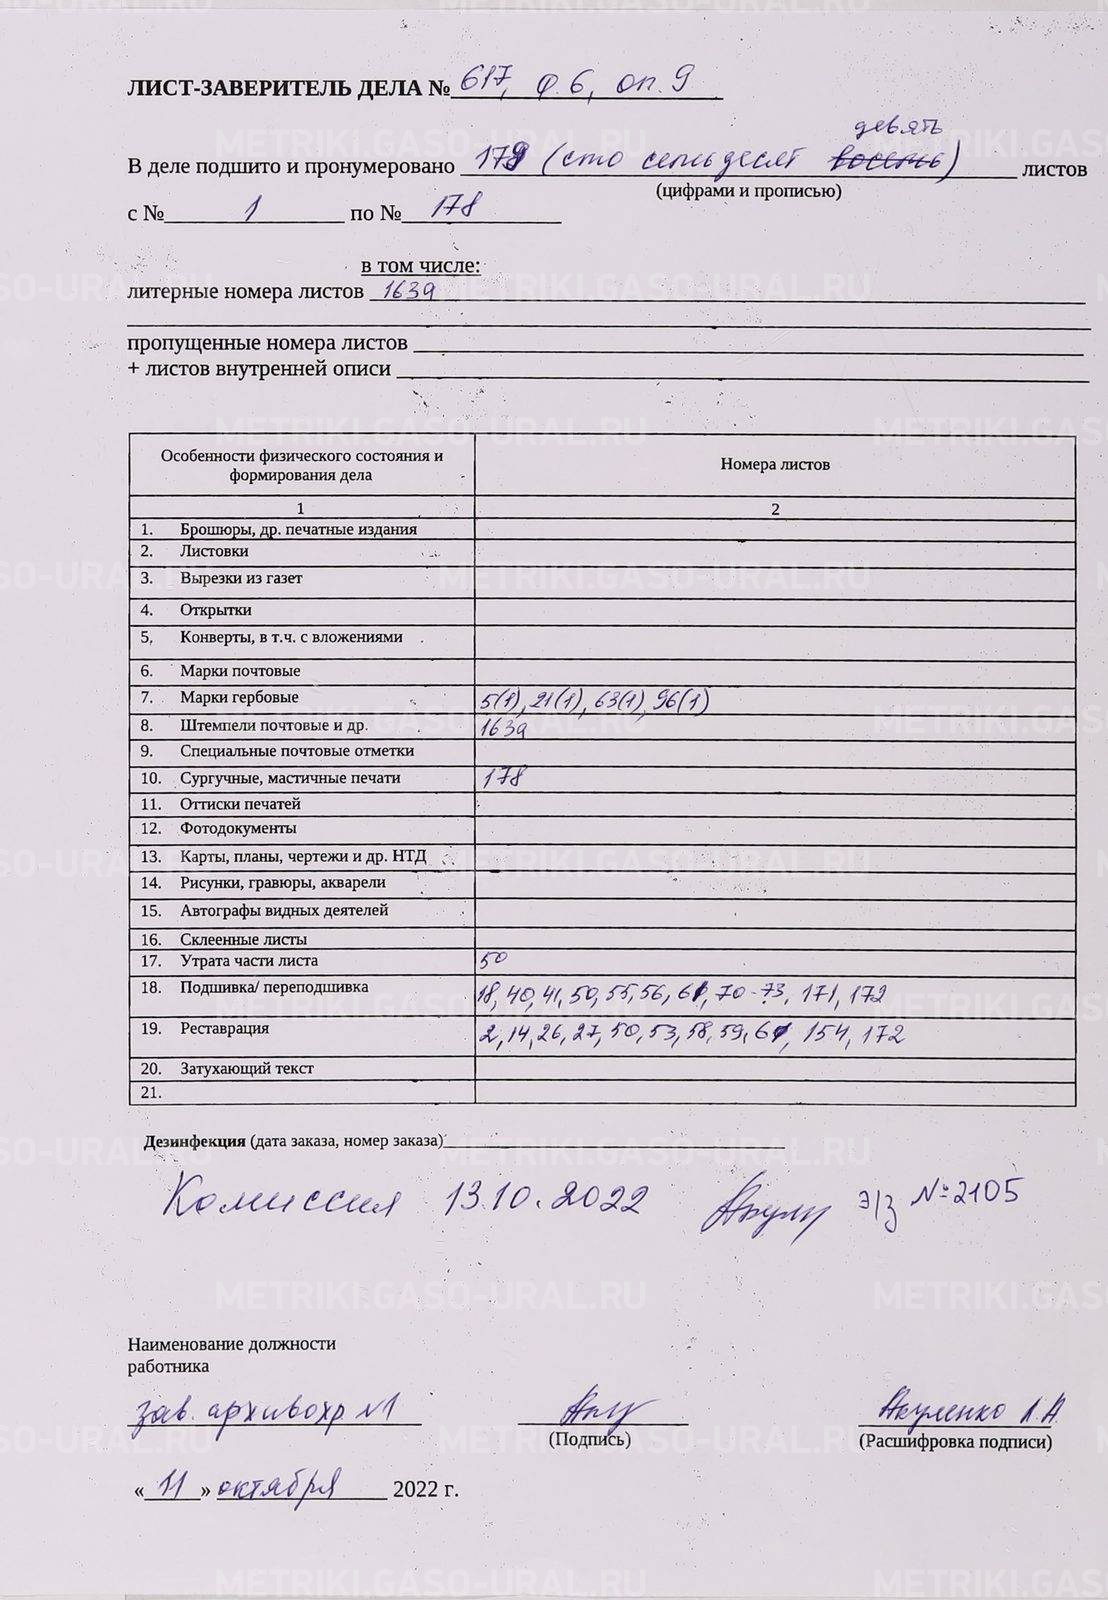 ЛИСТ-ЗАВЕРИТЕЛЬ ДЕЛА № 617, ф. 6, оп. 9
девять
В деле подшито и пронумеровано 179 (сто семьдесят восемь) листов
(цифрами и прописью)
с № 1 по № 178
в том числе:
литерные номера листов 163а
пропущенные номера листов
+ листов внутренней описи
Особенности физического состояния и формирования дела Номера листов
1 2
1. Брошюры, др. печатные издания
2. Листовки
3. Вырезки из газет
4. Открытки
5. Конверты, в т.ч. с вложениями
6. Марки почтовые
7. Марки гербовые 5(1), 21(1), 63(1), 96(1)
8. Штемпели почтовые и др. 163а
9. Специальные почтовые отметки
10. Сургучные, мастичные печати 178
11. Оттиски печатей
12. Фотодокументы
13. Карты, планы, чертежи и др. НТД
14. Рисунки, гравюры, акварели
15. Автографы видных деятелей
16. Склеенные листы
17. Утрата части листа 50
18. Подшивка/ переподшивка 18, 40, 41, 50, 55, 56, 61, 70-73, 171, 172
19. Реставрация 2, 14, 26, 27, 50, 53, 58, 59, 61, 154, 172
20. Затухающий текст
21.
Дезинфекция (дата заказа, номер заказа)
Комиссия 13.10.2022 э/з № 2105
Наименование должности
работника
зав. архивохр №1 Акуленко Л.А.
(Подпись) (Расшифровка подписи)
«11» октября 2022 г.
METRIKI.GASO-URAL.RU